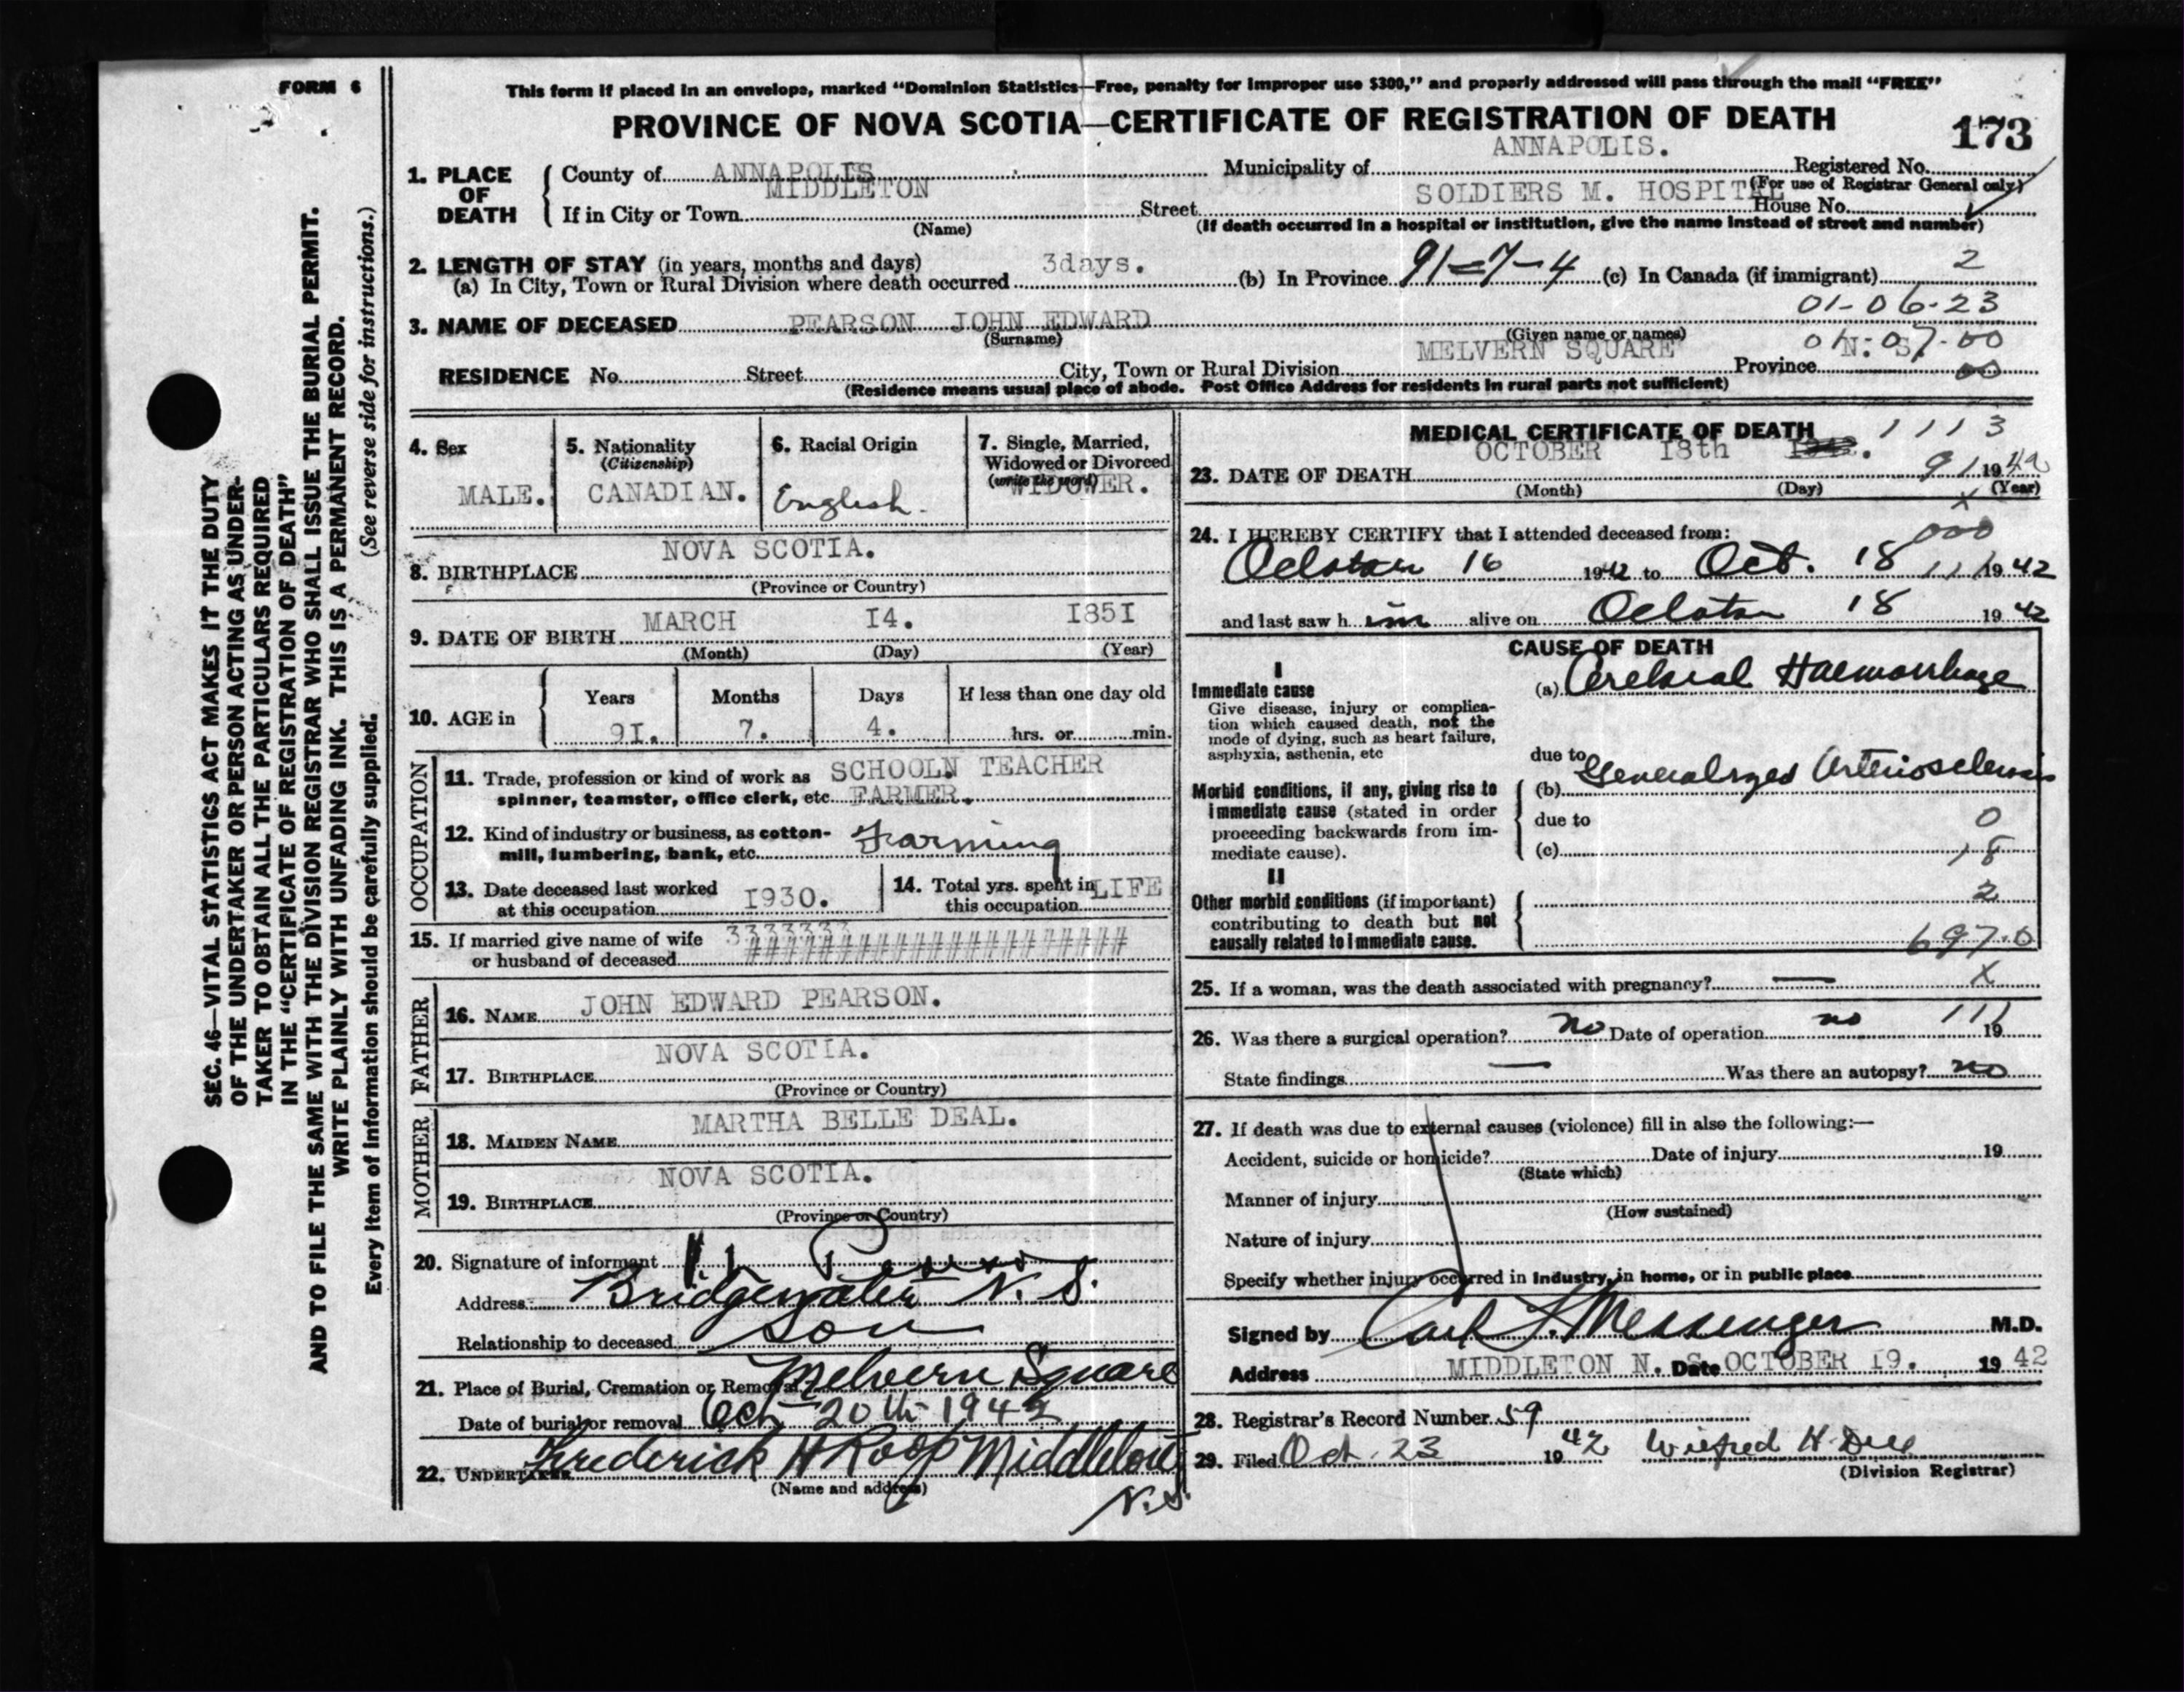 FORM 6
This form if placed in an envelope, marked "Dominion Statistics—Free, penalty for improper use $300," and properly addressed will pass through the mail "FREE"
PROVINCE OF NOVA SCOTIA—CERTIFICATE OF REGISTRATION OF DEATH
173
1. PLACE OF DEATH
County of ANNAPOLIS Municipality of ANNAPOLIS. Registered No.
(For use of Registrar General only)
If in City or Town MIDDLETON Street SOLDIERS M. HOSPITAL House No.
(Name) (If death occurred in a hospital or institution, give the name instead of street and number)
2. LENGTH OF STAY (in years, months and days)
(a) In City, Town or Rural Division where death occurred 3days. (b) In Province 91-7-4 (c) In Canada (if immigrant) 2
01-06-23
3. NAME OF DECEASED PEARSON JOHN EDWARD
(Surname) (Given name or names)
01-07-00
RESIDENCE No. Street City, Town or Rural Division MELVERN SQUARE Province N. S. 00
(Residence means usual place of abode. Post Office Address for residents in rural parts not sufficient)
4. Sex
MALE.
5. Nationality
(Citizenship)
CANADIAN.
6. Racial Origin
English.
7. Single, Married,
Widowed or Divorced
(write the word)
WIDOWER.
8. BIRTHPLACE NOVA SCOTIA.
(Province or Country)
9. DATE OF BIRTH MARCH I4. I85I
(Month) (Day) (Year)
10. AGE in
Years Months Days If less than one day old
9I. 7. 4. hrs. or min.
OCCUPATION
11. Trade, profession or kind of work as SCHOOLN TEACHER
spinner, teamster, office clerk, etc. FARMER.
12. Kind of industry or business, as cotton-
mill, lumbering, bank, etc. Farming
13. Date deceased last worked
at this occupation I930.
14. Total yrs. spent in LIFE
this occupation
15. If married give name of wife 3333333
or husband of deceased #######################
FATHER
16. NAME JOHN EDWARD PEARSON.
17. BIRTHPLACE NOVA SCOTIA.
(Province or Country)
MOTHER
18. MAIDEN NAME MARTHA BELLE DEAL.
19. BIRTHPLACE NOVA SCOTIA.
(Province or Country)
20. Signature of informant
Address Bridgewater N. S.
Relationship to deceased Son
21. Place of Burial, Cremation or Removal Melvern Square
Date of burial or removal Oct 20th 1942
22. UNDERTAKER Frederick H Roop Middleton
(Name and address) N.S.
MEDICAL CERTIFICATE OF DEATH 1113
23. DATE OF DEATH OCTOBER I8th 1942. 91 1942
(Month) (Day) (Year)
x
24. I HEREBY CERTIFY that I attended deceased from: 000
October 16 1942 to Oct. 18 111 1942
and last saw h im alive on October 18 1942
CAUSE OF DEATH
I
Immediate cause
Give disease, injury or complica-
tion which caused death, not the
mode of dying, such as heart failure,
asphyxia, asthenia, etc
(a) Cerebral Haemorrhage
due to
Morbid conditions, if any, giving rise to
immediate cause (stated in order
proceeding backwards from im-
mediate cause).
(b) Generalized Arteriosclerosis
due to 0
(c) 18
II
Other morbid conditions (if important)
contributing to death but not
causally related to immediate cause.
2
697.0
25. If a woman, was the death associated with pregnancy? — x
26. Was there a surgical operation? no Date of operation no 111 19
State findings — Was there an autopsy? no
27. If death was due to external causes (violence) fill in also the following:—
Accident, suicide or homicide? Date of injury 19
(State which)
Manner of injury
(How sustained)
Nature of injury
Specify whether injury occurred in industry, in home, or in public place
Signed by Messenger M.D.
Address MIDDLETON N. S. Date OCTOBER I9. 1942
28. Registrar's Record Number 59
29. Filed Oct. 23 1942 Wilfred H.
(Division Registrar)
SEC. 46—VITAL STATISTICS ACT MAKES IT THE DUTY
OF THE UNDERTAKER OR PERSON ACTING AS UNDER-
TAKER TO OBTAIN ALL THE PARTICULARS REQUIRED
IN THE "CERTIFICATE OF REGISTRATION OF DEATH"
AND TO FILE THE SAME WITH THE DIVISION REGISTRAR WHO SHALL ISSUE THE BURIAL PERMIT.
WRITE PLAINLY WITH UNFADING INK. THIS IS A PERMANENT RECORD.
Every item of information should be carefully supplied. (See reverse side for instructions.)